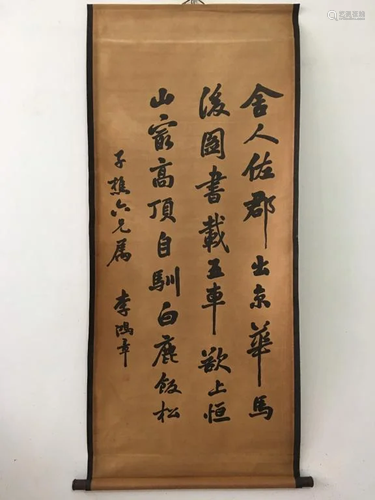 舍人佐郡出京華馬
後圖書載五車欲上恒
山㝡高頂自馴白鹿飯松
子樵六兄屬 李鴻章